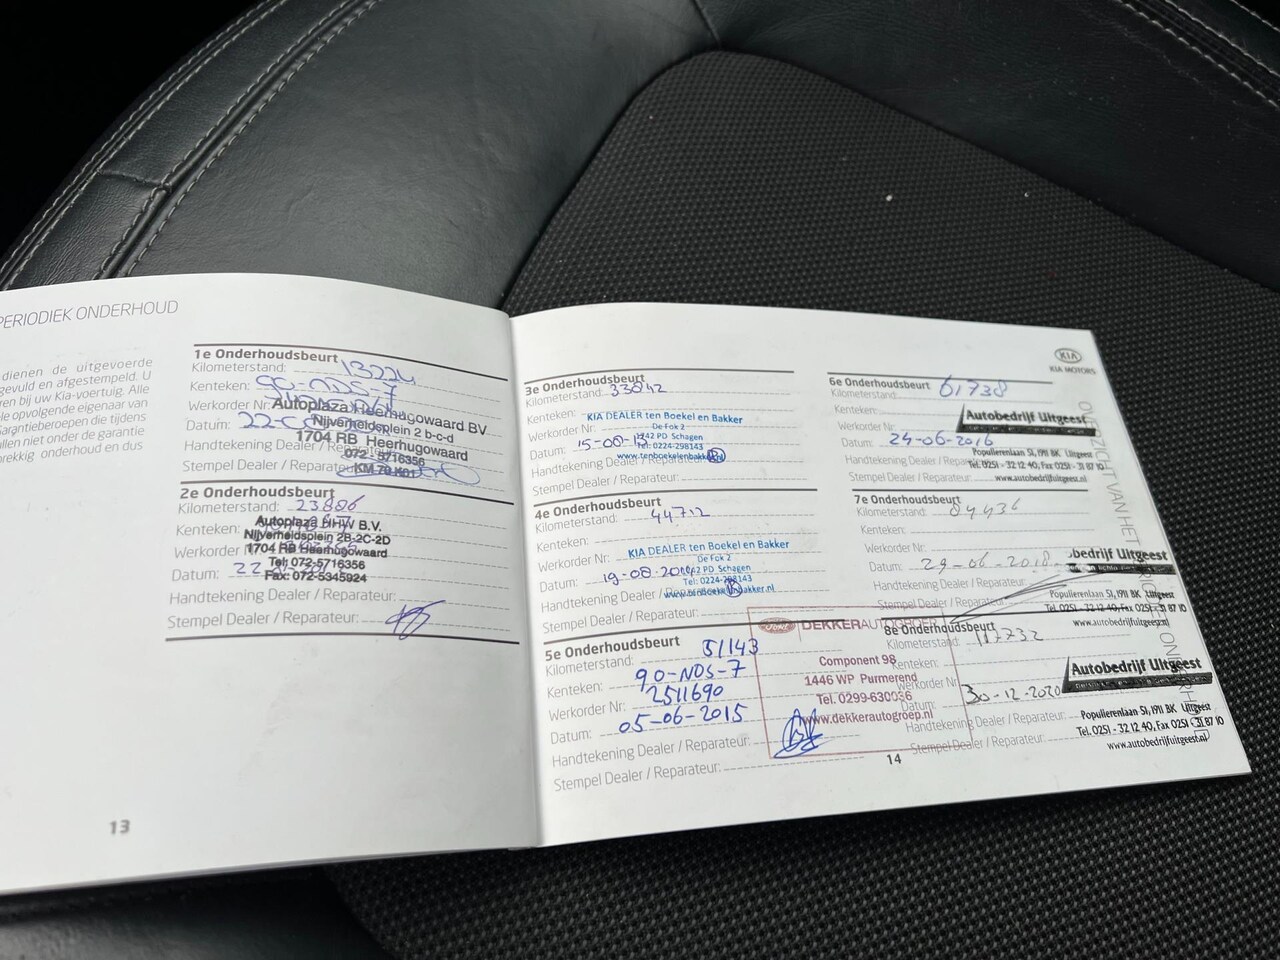 PERIODIEK ONDERHOUD
dienen de uitgevoerde
gevuld en afgestempeld. U
ren bij uw Kia-voertuig. Alle
le opvolgende eigenaar van
Garantieberoepen die tijdens
llen niet onder de garantie
rekkig onderhoud en dus
1e Onderhoudsbeurt
Kilometerstand: 13224
Kenteken: 90-NDS-7
Werkorder Nr:
Autoplaza Heerhugowaard BV
Datum: 22-
Nijverheidsplein 2 b-c-d
1704 RB Heerhugowaard
Handtekening Dealer / Reparateur:
072 - 5716356
Stempel Dealer / Reparateur:
2e Onderhoudsbeurt
Kilometerstand: 23806
Kenteken:
Autoplaza HHW B.V.
Nijverheidsplein 2B-2C-2D
Werkorder
1704 RB Heerhugowaard
Tel: 072-5716356
Datum: 22
Fax: 072-5345924
Handtekening Dealer / Reparateur:
Stempel Dealer / Reparateur:
13
3e Onderhoudsbeurt
Kilometerstand: 33842
Kenteken:
KIA DEALER ten Boekel en Bakker
De Fok 2
Werkorder Nr:
1742 PD Schagen
Datum: 15-08-
Tel: 0224-298143
www.tenboekelenbakker.nl
Handtekening Dealer / Reparateur:
Stempel Dealer / Reparateur:
4e Onderhoudsbeurt
Kilometerstand: 44712
Kenteken:
KIA DEALER ten Boekel en Bakker
De Fok 2
Werkorder Nr:
1742 PD Schagen
Datum: 19-08-2014
Tel: 0224-298143
Handtekening Dealer / Reparateur:
Stempel Dealer / Reparateur:
5e Onderhoudsbeurt
Kilometerstand: 51143
Kenteken: 90-NDS-7
Werkorder Nr: 2511690
Datum: 05-06-2015
Handtekening Dealer / Reparateur:
Stempel Dealer / Reparateur:
DEKKERAUTOGROEP
Component 98
1446 WP Purmerend
Tel. 0299-630036
www.dekkerautogroep.nl
KIA
KIA MOTORS
6e Onderhoudsbeurt
Kilometerstand: 61738
Kenteken:
Autobedrijf Uitgeest
Werkorder Nr:
Datum: 24-06-2016
Populierenlaan 51, 1911 BK Uitgeest
Handtekening Dealer / Reparateur:
Tel. 0251 - 32 12 40, Fax 0251 - 31 87 10
Stempel Dealer / Reparateur:
www.autobedrijfuitgeest.nl
7e Onderhoudsbeurt
Kilometerstand: 84436
Kenteken:
Werkorder Nr:
bedrijf Uitgeest
Datum: 29-06-2018
Handtekening Dealer / Reparateur:
Populierenlaan 51, 1911 BK Uitgeest
Tel. 0251 - 32 12 40, Fax 0251 - 31 87 10
www.autobedrijfuitgeest.nl
8e Onderhoudsbeurt
Kilometerstand: 117732
Kenteken:
Autobedrijf Uitgeest
Werkorder Nr:
Datum: 30-12-2020
Populierenlaan 51, 1911 BK Uitgeest
Handtekening Dealer / Reparateur:
Tel. 0251 - 32 12 40, Fax 0251 - 31 87 10
Stempel Dealer / Reparateur:
www.autobedrijfuitgeest.nl
14